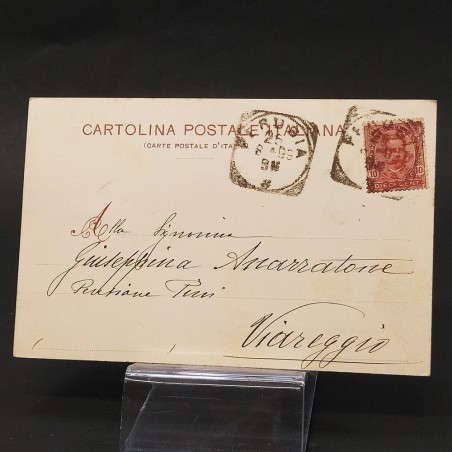 CARTOLINA POSTALE ITALIANA
(CARTE POSTALE D'ITALIE)
PERUGIA
25
8M
10 10
DIECI CENT
Alla Signorina
Giuseppina Anarratone
Pensione Tini
Viareggio